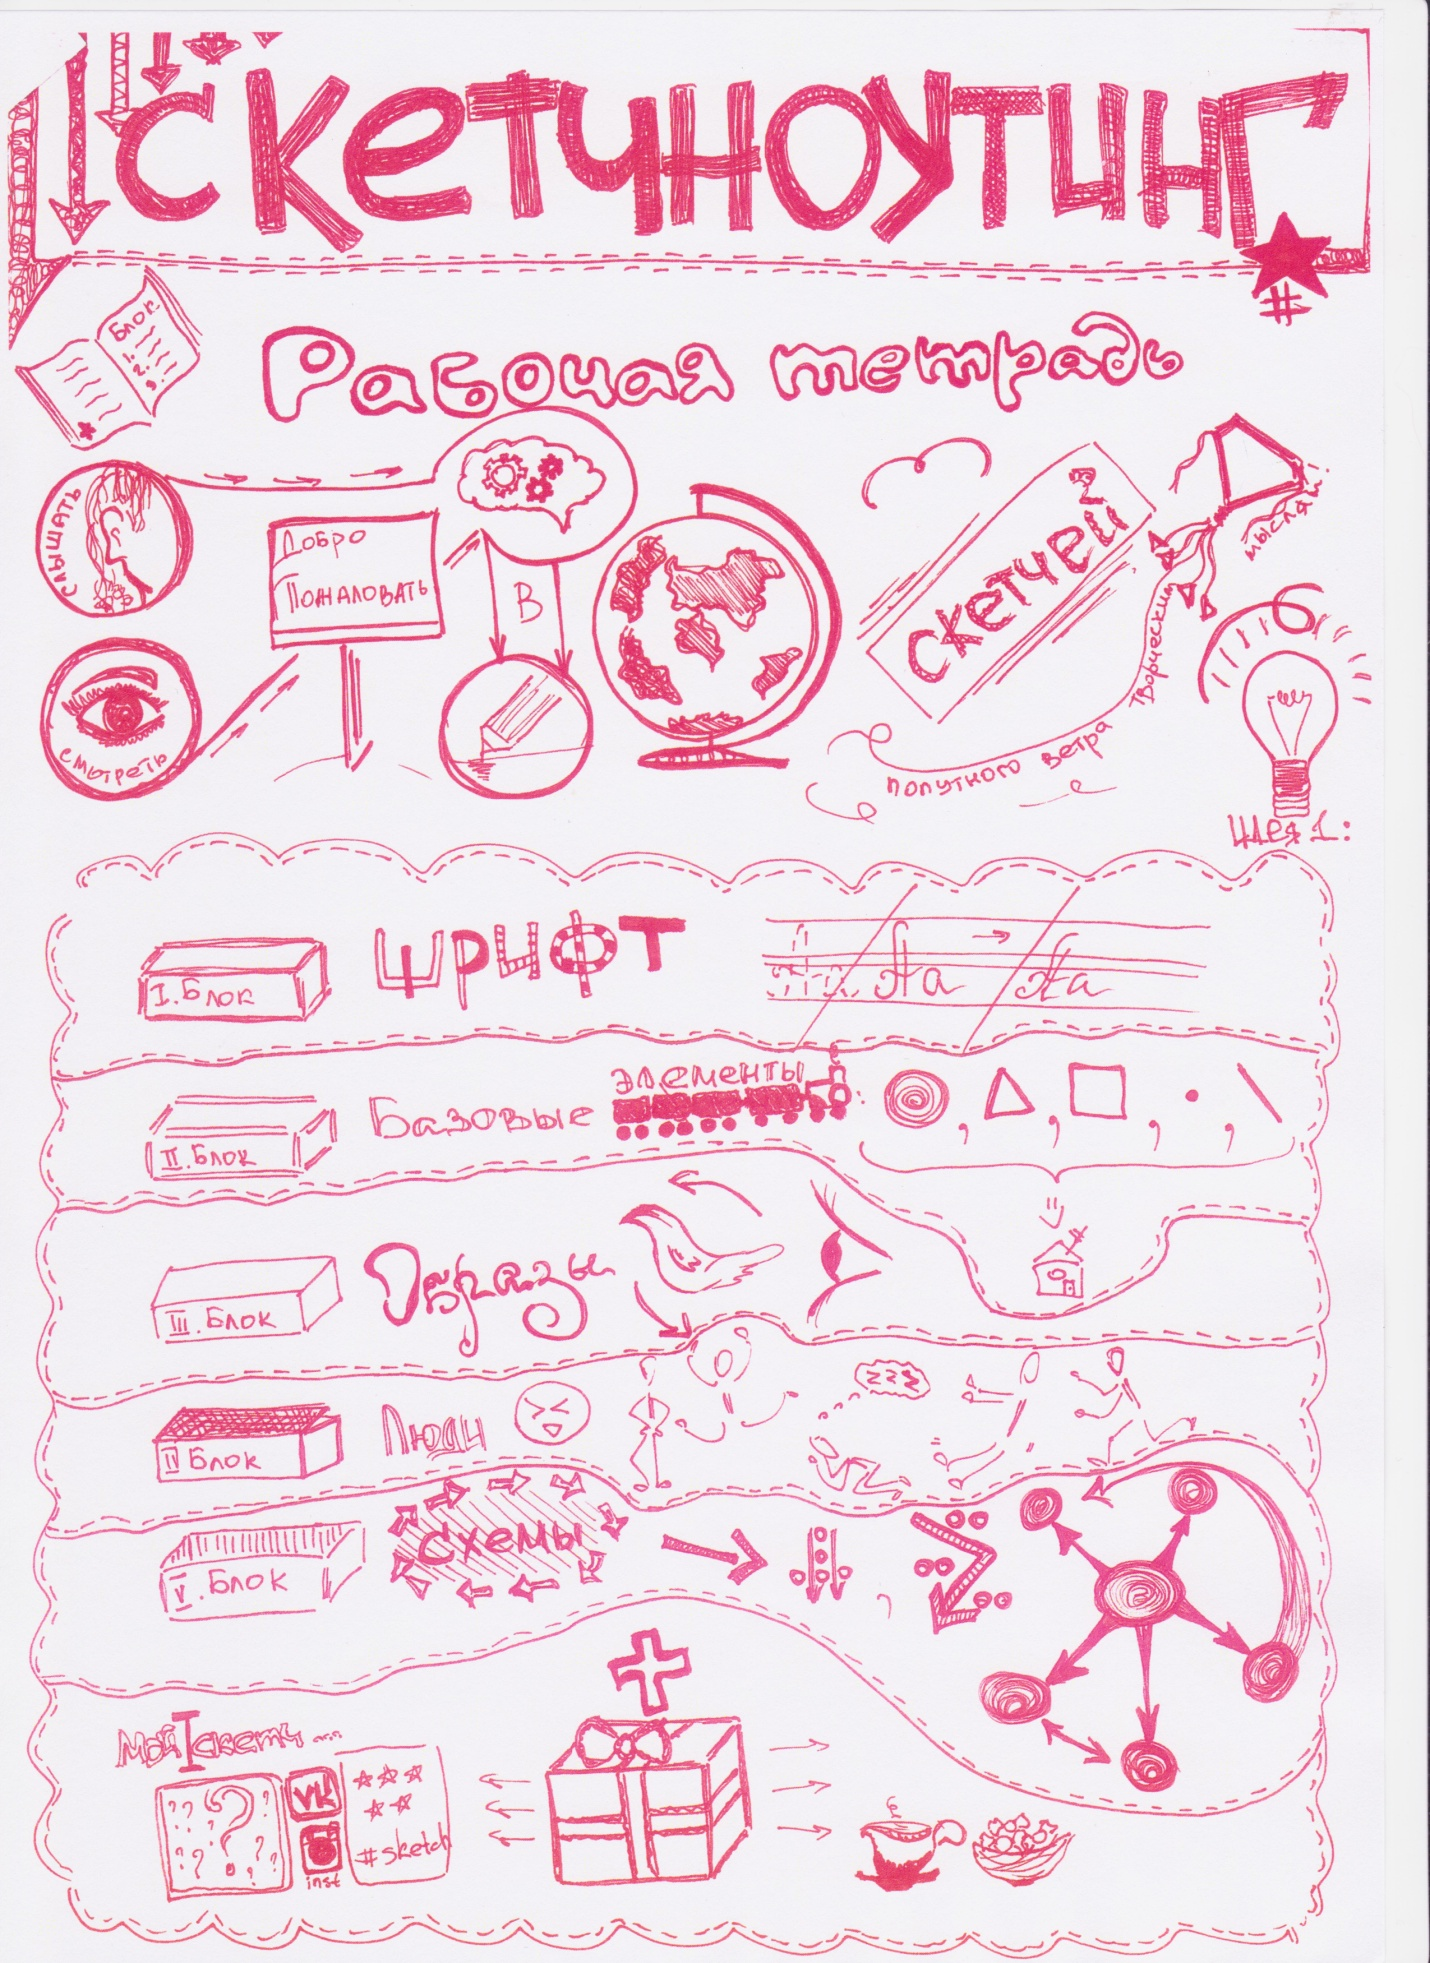 СКЕТЧНОУТИНГ
#
Блок
1.
2.
3.
Рабочая тетрадь
СЛЫШАТЬ
Добро
Пожаловать
В
СКЕТЧЕЙ
смотреть
попутного ветра творческим мыслям!
Идея 1:
I. Блок
ШРИФТ
Аа Аа
II. Блок
Базовые элементы
III. Блок
Образы
IV Блок
Люди
zzz
V. Блок
схемы
Мой I скетч ....
? ? ? ? ? ? ?
VK
inst
#sketch